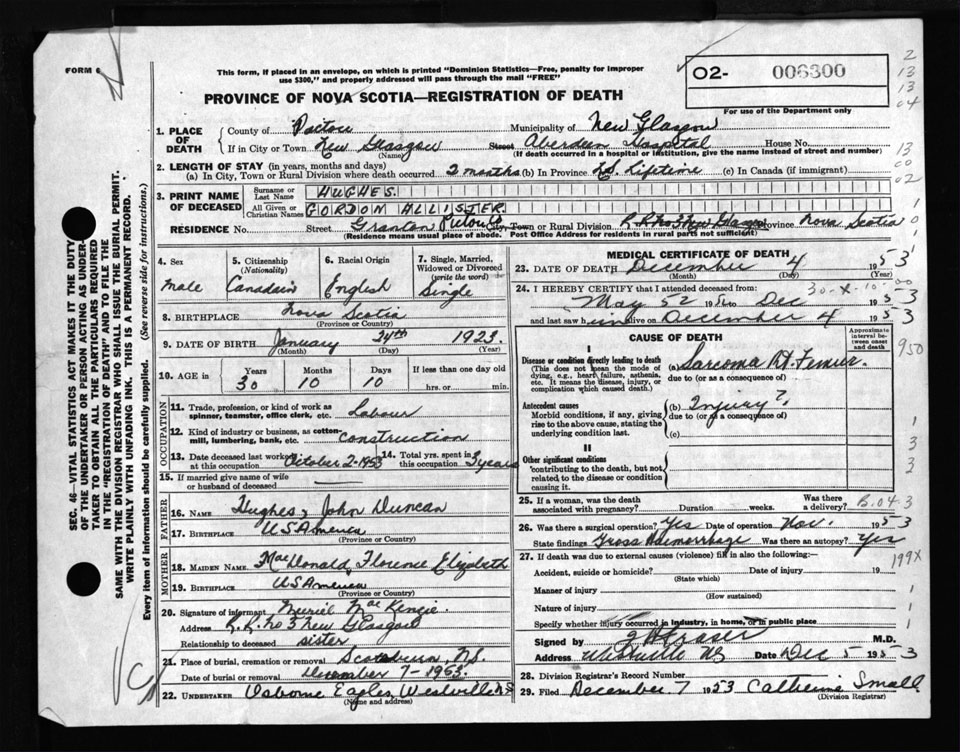 FORM 6
This form, if placed in an envelope, on which is printed "Dominion Statistics—Free, penalty for improper
use $300," and properly addressed will pass through the mail "FREE"
O2- 006300
For use of the Department only
PROVINCE OF NOVA SCOTIA—REGISTRATION OF DEATH
1. PLACE OF DEATH
County of Pictou Municipality of New Glasgow
If in City or Town New Glasgow Street Aberdeen Hospital House No.
(Name) (If death occurred in a hospital or institution, give the name instead of street and number)
2. LENGTH OF STAY (in years, months and days)
(a) In City, Town or Rural Division where death occurred 2 months (b) In Province N.S. Lifetime (c) In Canada (if immigrant)
3. PRINT NAME OF DECEASED
Surname or Last Name HUGHES.
All Given or Christian Names GORDON ALLISTER
RESIDENCE No. Street Granton Pictou Co City, Town or Rural Division R.R. No 3 New Glasgow Province Nova Scotia
(Residence means usual place of abode. Post Office Address for residents in rural parts not sufficient)
4. Sex
male
5. Citizenship
(Nationality)
Canadian
6. Racial Origin
English
7. Single, Married,
Widowed or Divorced
(write the word)
Single
8. BIRTHPLACE Nova Scotia
(Province or Country)
9. DATE OF BIRTH January 24th 1923
(Month) (Day) (Year)
10. AGE in Years Months Days If less than one day
30 10 10 hrs. or min.
OCCUPATION
11. Trade, profession, or kind of work as
spinner, teamster, office clerk, etc. Labour
12. Kind of industry or business, as cotton-
mill, lumbering, bank, etc. construction
13. Date deceased last worked
at this occupation October 2-1953
14. Total yrs. spent in
this occupation 3 years
15. If married give name of wife
or husband of deceased
FATHER
16. NAME Hughes, John Duncan
17. BIRTHPLACE USAmerica
(Province or Country)
MOTHER
18. MAIDEN NAME MacDonald Florence Elizabeth
19. BIRTHPLACE USAmerica
(Province or Country)
20. Signature of informant Muriel MacKenzie
Address R.R. No 3 New Glasgow
Relationship to deceased sister
21. Place of burial, cremation or removal Scotsburn, N.S.
Date of burial or removal December 7-1953
22. UNDERTAKER Osborne Eagles, Westville N.S
(Name and address)
MEDICAL CERTIFICATE OF DEATH
23. DATE OF DEATH December 4 1953
(Month) (Day)
24. I HEREBY CERTIFY that I attended deceased from:
May 52 195 to Dec 1953
and last saw him alive on December 4 1953
CAUSE OF DEATH
Approximate
interval be-
tween onset
and death
I
Disease or condition directly leading to death
(This does not mean the mode of
dying, e.g., heart failure, asthenia,
etc. It means the disease, injury, or
complication which caused death.)
(a) Sarcoma Rt. Femur.
due to (or as a consequence of)
Antecedent causes
Morbid conditions, if any, giving
rise to the above cause, stating the
underlying condition last.
(b) Injury?
due to (or as a consequence of)
(c)
II
Other significant conditions
contributing to the death, but not
related to the disease or condition
causing it.
25. If a woman, was the death
associated with pregnancy? Duration weeks. Was there a delivery?
26. Was there a surgical operation? Yes Date of operation Nov. 1953
State findings Gross Haemorrhage Was there an autopsy? Yes
27. If death was due to external causes (violence) fill in also the following:—
Accident, suicide or homicide? Date of injury 19
(State which)
Manner of injury
(How sustained)
Nature of injury
Specify whether injury occurred in industry, in home, or in public place
Signed by Fraser M.D.
Address Westville NS Date Dec 5 1953
28. Division Registrar's Record Number
29. Filed December 7 1953 Catherine Small
(Division Registrar)
SEC. 46—VITAL STATISTICS ACT MAKES IT THE DUTY
OF THE UNDERTAKER OR PERSON ACTING AS UNDER-
TAKER TO OBTAIN ALL THE PARTICULARS REQUIRED
IN THE "REGISTRATION OF DEATH" AND TO FILE THE
SAME WITH THE DIVISION REGISTRAR WHO SHALL ISSUE THE BURIAL PERMIT.
WRITE PLAINLY WITH UNFADING INK. THIS IS A PERMANENT RECORD.
Every item of information should be carefully supplied. (See reverse side for instructions.)
2
13
13
04
13
00
02
1
0
1
950
1
3
3
B.04-3
199X
1
1
1